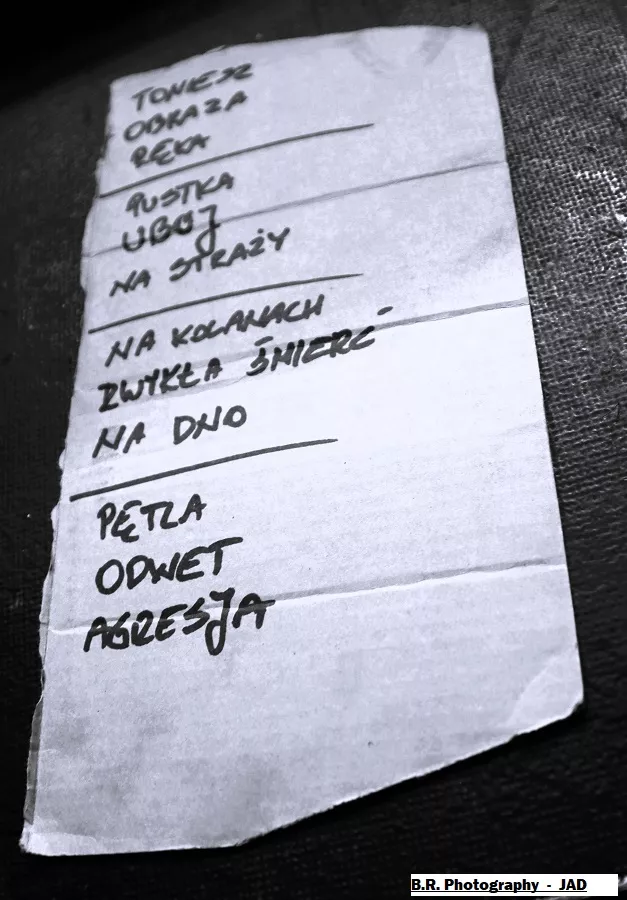 TONIESZ
OBRAZA
RĘKA
PUSTKA
UBOJ
NA STRAŻY
NA KOLANACH
ZWYKŁA ŚMIERĆ
NA DNO
PĘTLA
ODWET
AGRESJA
B.R. Photography - JAD